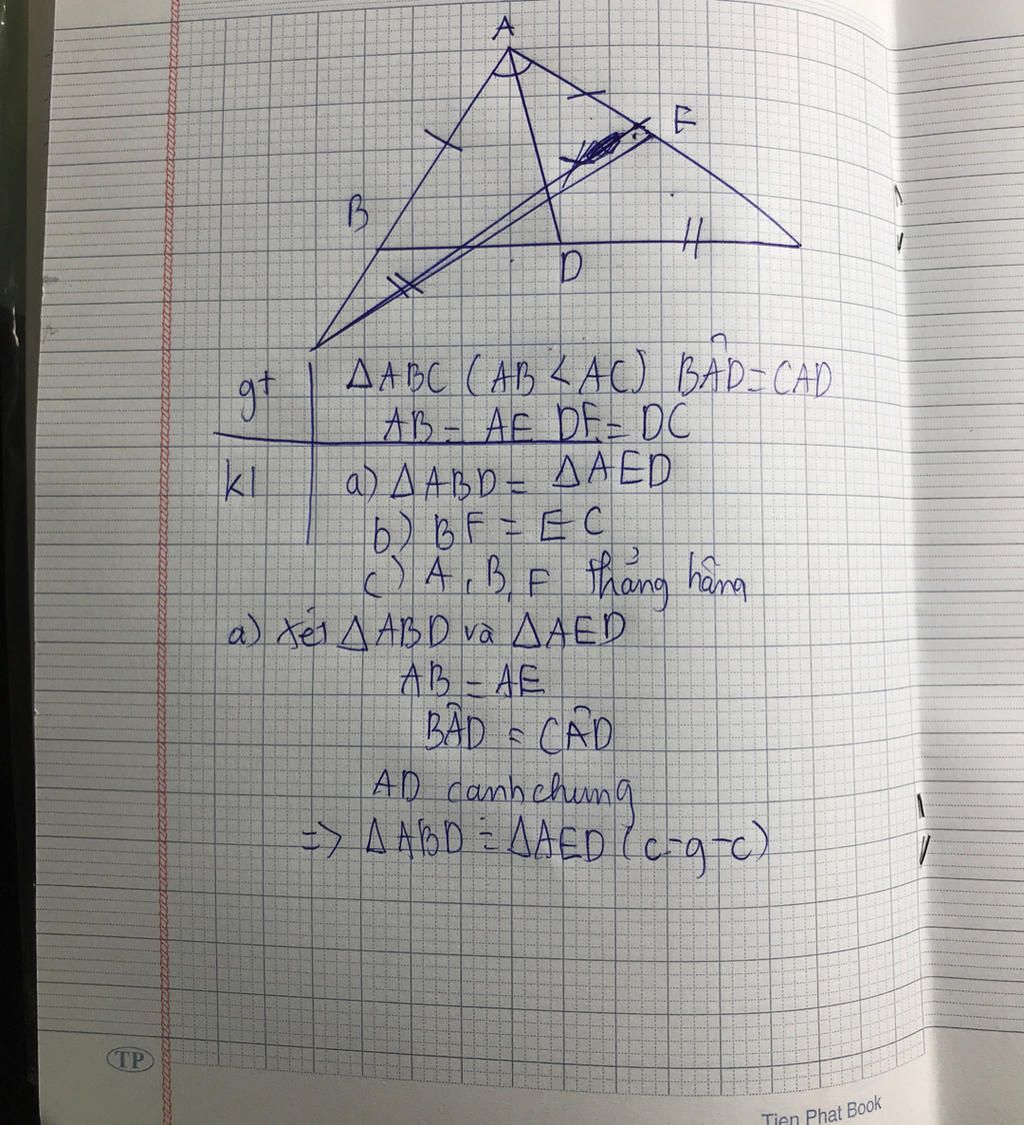 A
E
B
D
gt
ΔABC (AB < AC) BÂD = CAD
AB = AE DF = DC
kl
a) ΔABD = ΔAED
b) BF = EC
c) A, B, F thẳng hâng
a) xét ΔABD và ΔAED
AB = AE
BÂD = CÂD
AD canh chung
=> ΔABD = ΔAED (c-g-c)
TP
Tien Phat Book